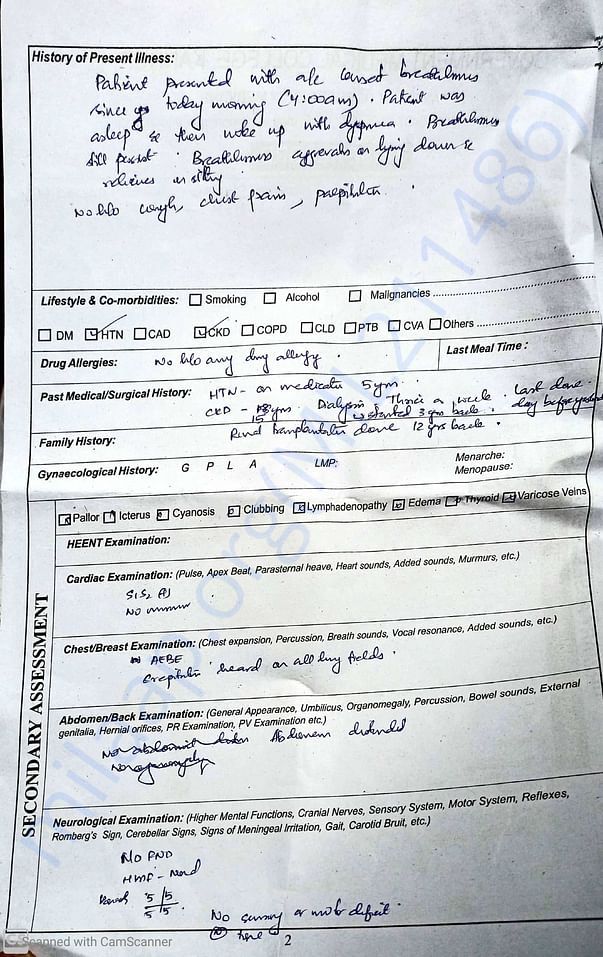 History of Present Illness:
Patient presented with a/c onset breathlessness
since today morning (4:00am). Patient was
asleep & then woke up with dyspnea. Breathlessness
still persist. Breathlessness aggrevates on lying down &
relieves on sitting
No h/o cough, chest pain, palpitation.
Lifestyle & Co-morbidities: Smoking Alcohol Malignancies
DM HTN CAD CKD COPD CLD PTB CVA Others
Drug Allergies: No h/o any drug allergy. Last Meal Time :
Past Medical/Surgical History: HTN - on medication 5yrs.
CKD - 15 yrs. Dialysis Thrice a week. last done
restarted 3 yrs back. day before
Family History: Renal transplantation done 12 yrs back.
Gynaecological History: G P L A LMP: Menarche:
Menopause:
SECONDARY ASSESSMENT
Pallor Icterus Cyanosis Clubbing Lymphadenopathy Edema Thyroid Varicose Veins
HEENT Examination:
Cardiac Examination: (Pulse, Apex Beat, Parasternal heave, Heart sounds, Added sounds, Murmurs, etc.)
S1S2
No murmur
Chest/Breast Examination: (Chest expansion, Percussion, Breath sounds, Vocal resonance, Added sounds, etc.)
AEBE
Crepitation heard on all lung fields.
Abdomen/Back Examination: (General Appearance, Umbilicus, Organomegaly, Percussion, Bowel sounds, External
genitalia, Hernial orifices, PR Examination, PV Examination etc.)
Abdomen distended
No organomegaly
Neurological Examination: (Higher Mental Functions, Cranial Nerves, Sensory System, Motor System, Reflexes,
Romberg's Sign, Cerebellar Signs, Signs of Meningeal Irritation, Gait, Carotid Bruit, etc.)
No FND
HMF -
5 5
5 5
No sensory or motor deficit
2
Scanned with CamScanner
milaap.org